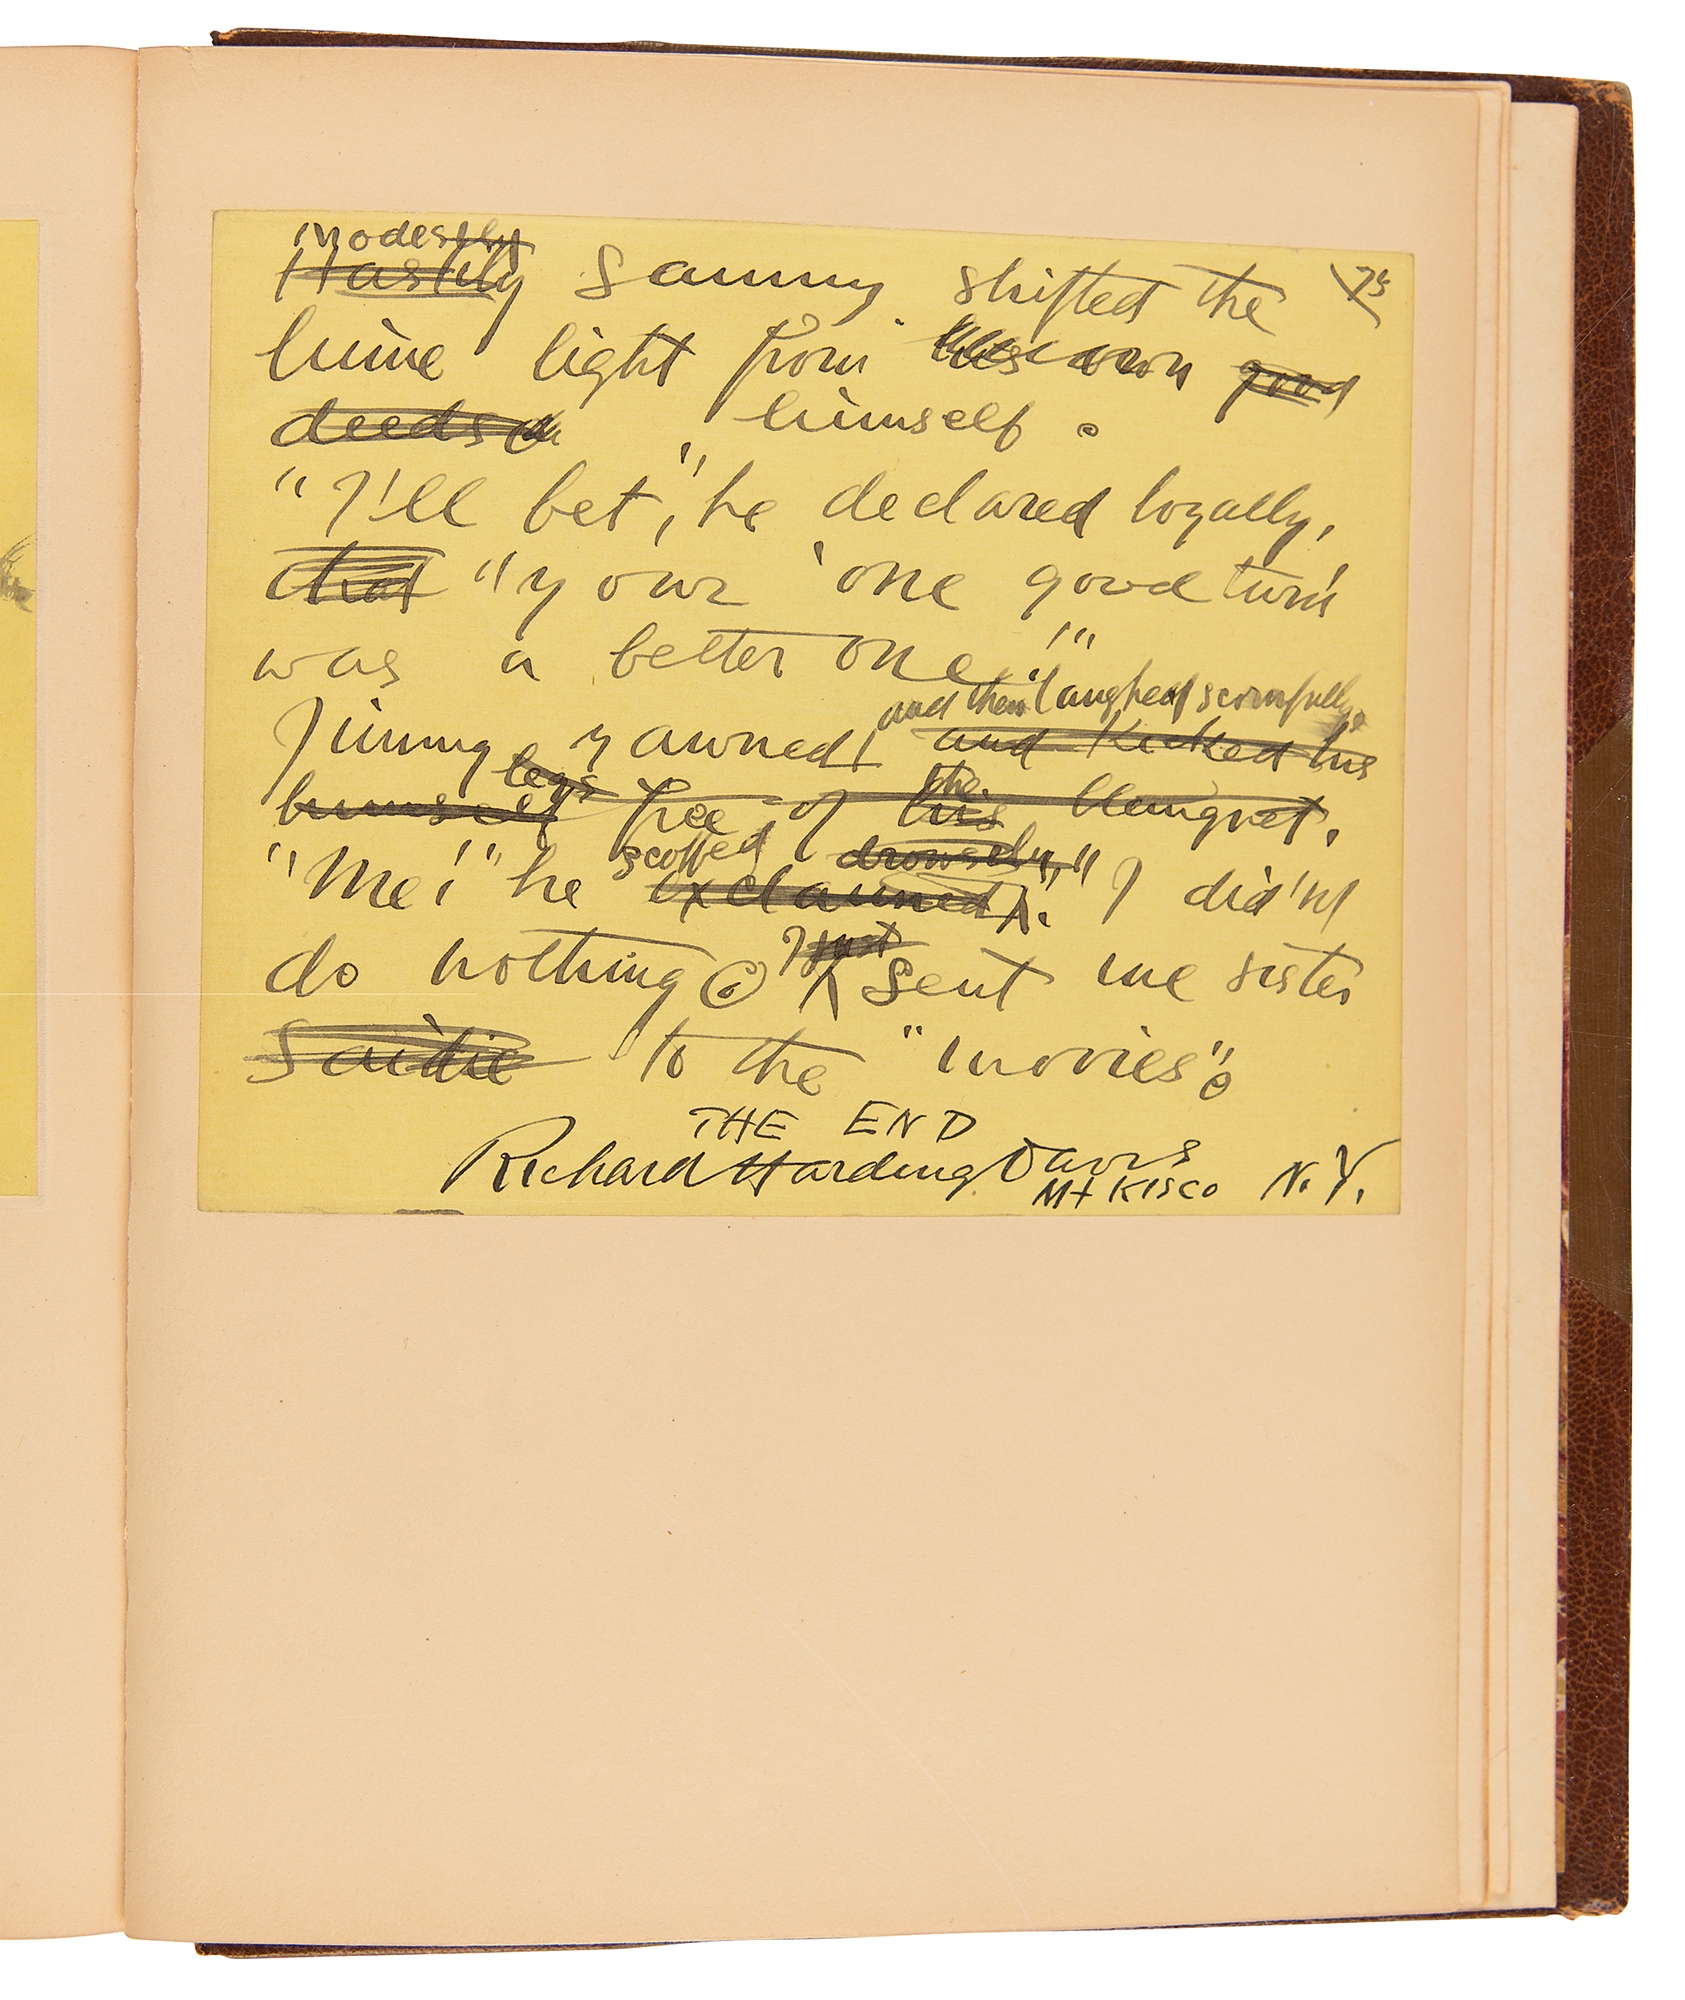 modestly
Hastily Sammy shifted the 75
lime light from his own good
deeds himself.
"I'll bet," he declared loyally,
that "your 'one good turn'
was a better one!"
and then laughed scornfully.
Jimmy yawned and kicked his
legs the
himself free of his blanquet.
scoffed drowsily,"
"Me!" he exclaimed. "I did'nt
I just
do nothing. sent me sister
Saidie to the "movies".
THE END
Richard Harding Davis
Mt Kisco N.Y.